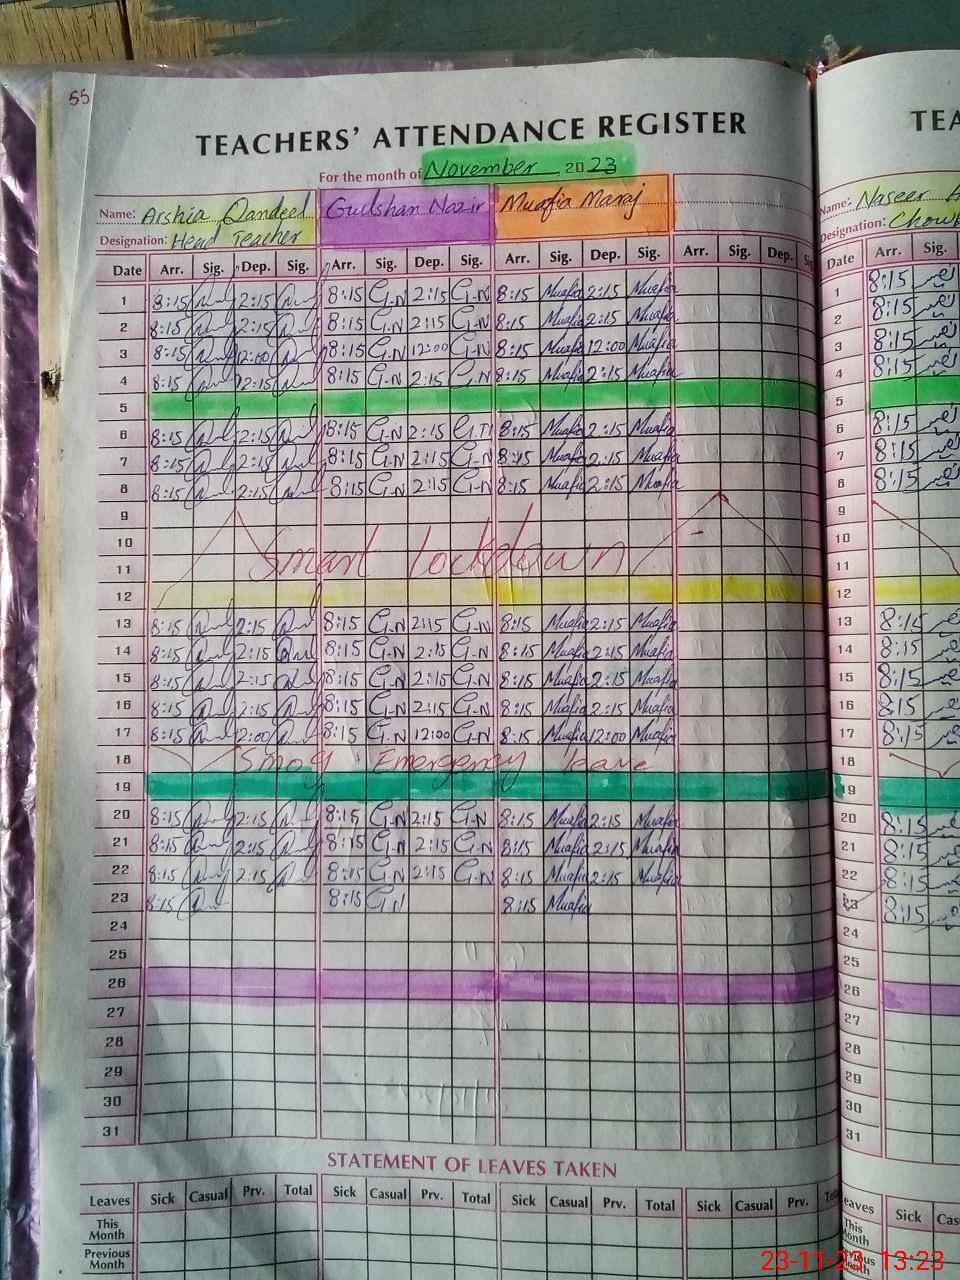 55
TEACHERS' ATTENDANCE REGISTER TEA
For the month of November 2023
Name: Arshia Qandeel Gulshan Nazir Muafia Maraj Name: Naseer
Designation: Head Teacher Designation:
Date Arr. Sig. Dep. Sig. Arr. Sig. Dep. Sig. Arr. Sig. Dep. Sig. Arr. Sig. Dep. Date Arr. Sig.
1 8:15 2:15 8:15 G.N 2:15 G.N 8:15 Muafia 2:15 Muafia 1 8:15
2 8:15 2:15 8:15 G.N 2:15 G.N 8:15 Muafia 2:15 Muafia 2 8:15
3 8:15 12:00 8:15 G.N 12:00 G.N 8:15 Muafia 12:00 Muafia 3 8:15
4 8:15 2:15 8:15 G.N 2:15 G.N 8:15 Muafia 2:15 Muafia 4 8:15
5 5
6 8:15 2:15 8:15 G.N 2:15 G.N 8:15 Muafia 2:15 Muafia 6 8:15
7 8:15 2:15 8:15 G.N 2:15 G.N 8:15 Muafia 2:15 Muafia 7 8:15
8 8:15 2:15 8:15 G.N 2:15 G.N 8:15 Muafia 2:15 Muafia 8 8:15
9 9
10 Smart lockdown 10
11 11
12 12
13 8:15 2:15 8:15 G.N 2:15 G.N 8:15 Muafia 2:15 Muafia 13 8:15
14 8:15 2:15 8:15 G.N 2:15 G.N 8:15 Muafia 2:15 Muafia 14 8:15
15 8:15 2:15 8:15 G.N 2:15 G.N 8:15 Muafia 2:15 Muafia 15 8:15
16 8:15 2:15 8:15 G.N 2:15 G.N 8:15 Muafia 2:15 Muafia 16 8:15
17 8:15 12:00 8:15 G.N 12:00 G.N 8:15 Muafia 12:00 Muafia 17 8:15
18 Smog Emergency leave 18
19 19
20 8:15 2:15 8:15 G.N 2:15 G.N 8:15 Muafia 2:15 Muafia 20 8:15
21 8:15 2:15 8:15 G.N 2:15 G.N 8:15 Muafia 2:15 Muafia 21 8:15
22 8:15 2:15 8:15 G.N 2:15 G.N 8:15 Muafia 2:15 Muafia 22 8:15
23 8:15 8:15 G.N 8:15 Muafia 23 8:15
24 24
25 25
26 26
27 27
28 28
29 29
30 30
31 31
STATEMENT OF LEAVES TAKEN
Leaves Sick Casual Prv. Total Sick Casual Prv. Total Sick Casual Prv. Total Sick Casual Prv. Leaves Sick
This Month This Month
Previous Month Month
23-11-23 13:23